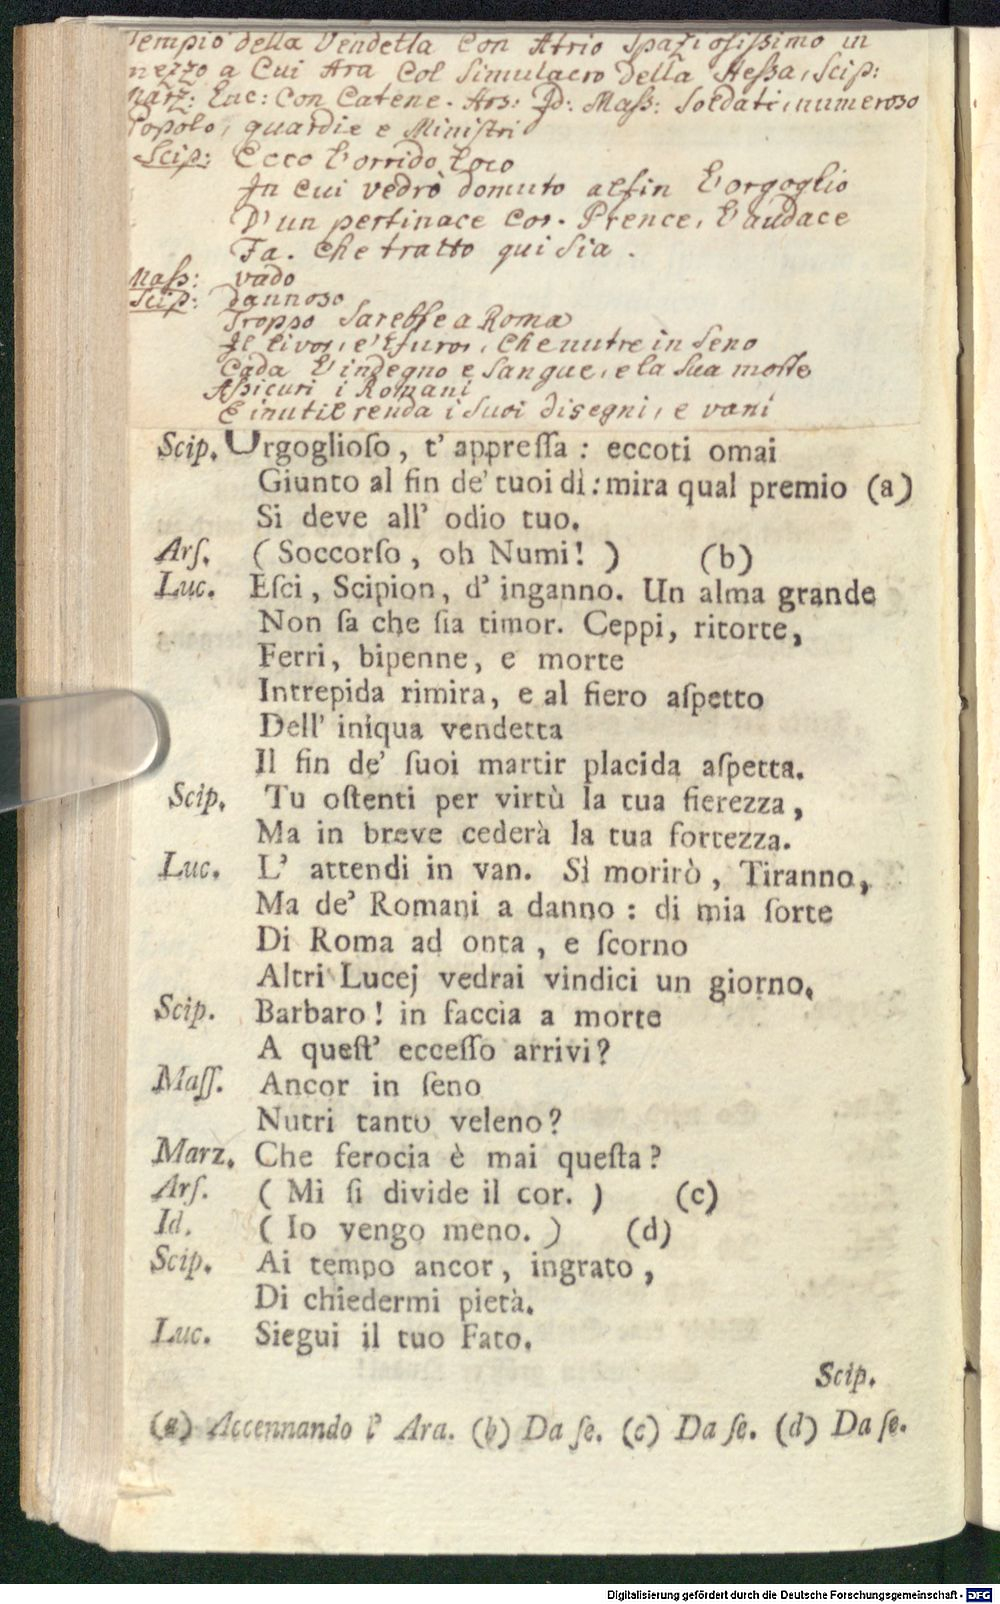 Tempio della Vendetta con Atrio Spaziosissimo in
mezzo a cui Ara col Simulacro della Stessa, Scip:
Marz: Luc: con Catene. Ars: Id: Mass: Soldati, numeroso
Popolo, guardie e Ministri
Scip: Ecco l'orrido loco
In cui vedrò domuto alfin l'orgoglio
D'un pertinace cor. Prence, l'audace
Fa. che tratto qui sia.
Mass: vado
Scip: dannoso
Troppo Sarebbe a Roma
Il livor, e'l furor, che nutre in Seno
Cada l'indegno e Sangue, e la Sua morte
Assicuri i Romani
E inutil renda i Suoi disegni, e vani
Scip. Orgoglioſo, t' appreſſa : eccoti omai
Giunto al fin de' tuoi dì : mira qual premio (a)
Si deve all' odio tuo.
Arſ. ( Soccorſo, oh Numi! ) (b)
Luc. Eſci, Scipion, d' inganno. Un alma grande
Non ſa che ſia timor. Ceppi, ritorte,
Ferri, bipenne, e morte
Intrepida rimira, e al fiero aſpetto
Dell' iniqua vendetta
Il fin de' ſuoi martir placida aſpetta.
Scip. Tu oſtenti per virtù la tua fierezza,
Ma in breve cederà la tua fortezza.
Luc. L' attendi in van. Sì morirò, Tiranno,
Ma de' Romani a danno : di mia ſorte
Di Roma ad onta, e ſcorno
Altri Lucej vedrai vindici un giorno.
Scip. Barbaro! in faccia a morte
A queſt' ecceſſo arrivi?
Maſſ. Ancor in ſeno
Nutri tanto veleno?
Marz. Che ferocia è mai queſta?
Arſ. ( Mi ſi divide il cor. ) (c)
Id. ( Io vengo meno. ) (d)
Scip. Ai tempo ancor, ingrato,
Di chiedermi pietà.
Luc. Siegui il tuo Fato.
Scip.
(a) Accennando l' Ara. (b) Da ſe. (c) Da ſe. (d) Da ſe.
Digitalisierung gefördert durch die Deutsche Forschungsgemeinschaft - DFG